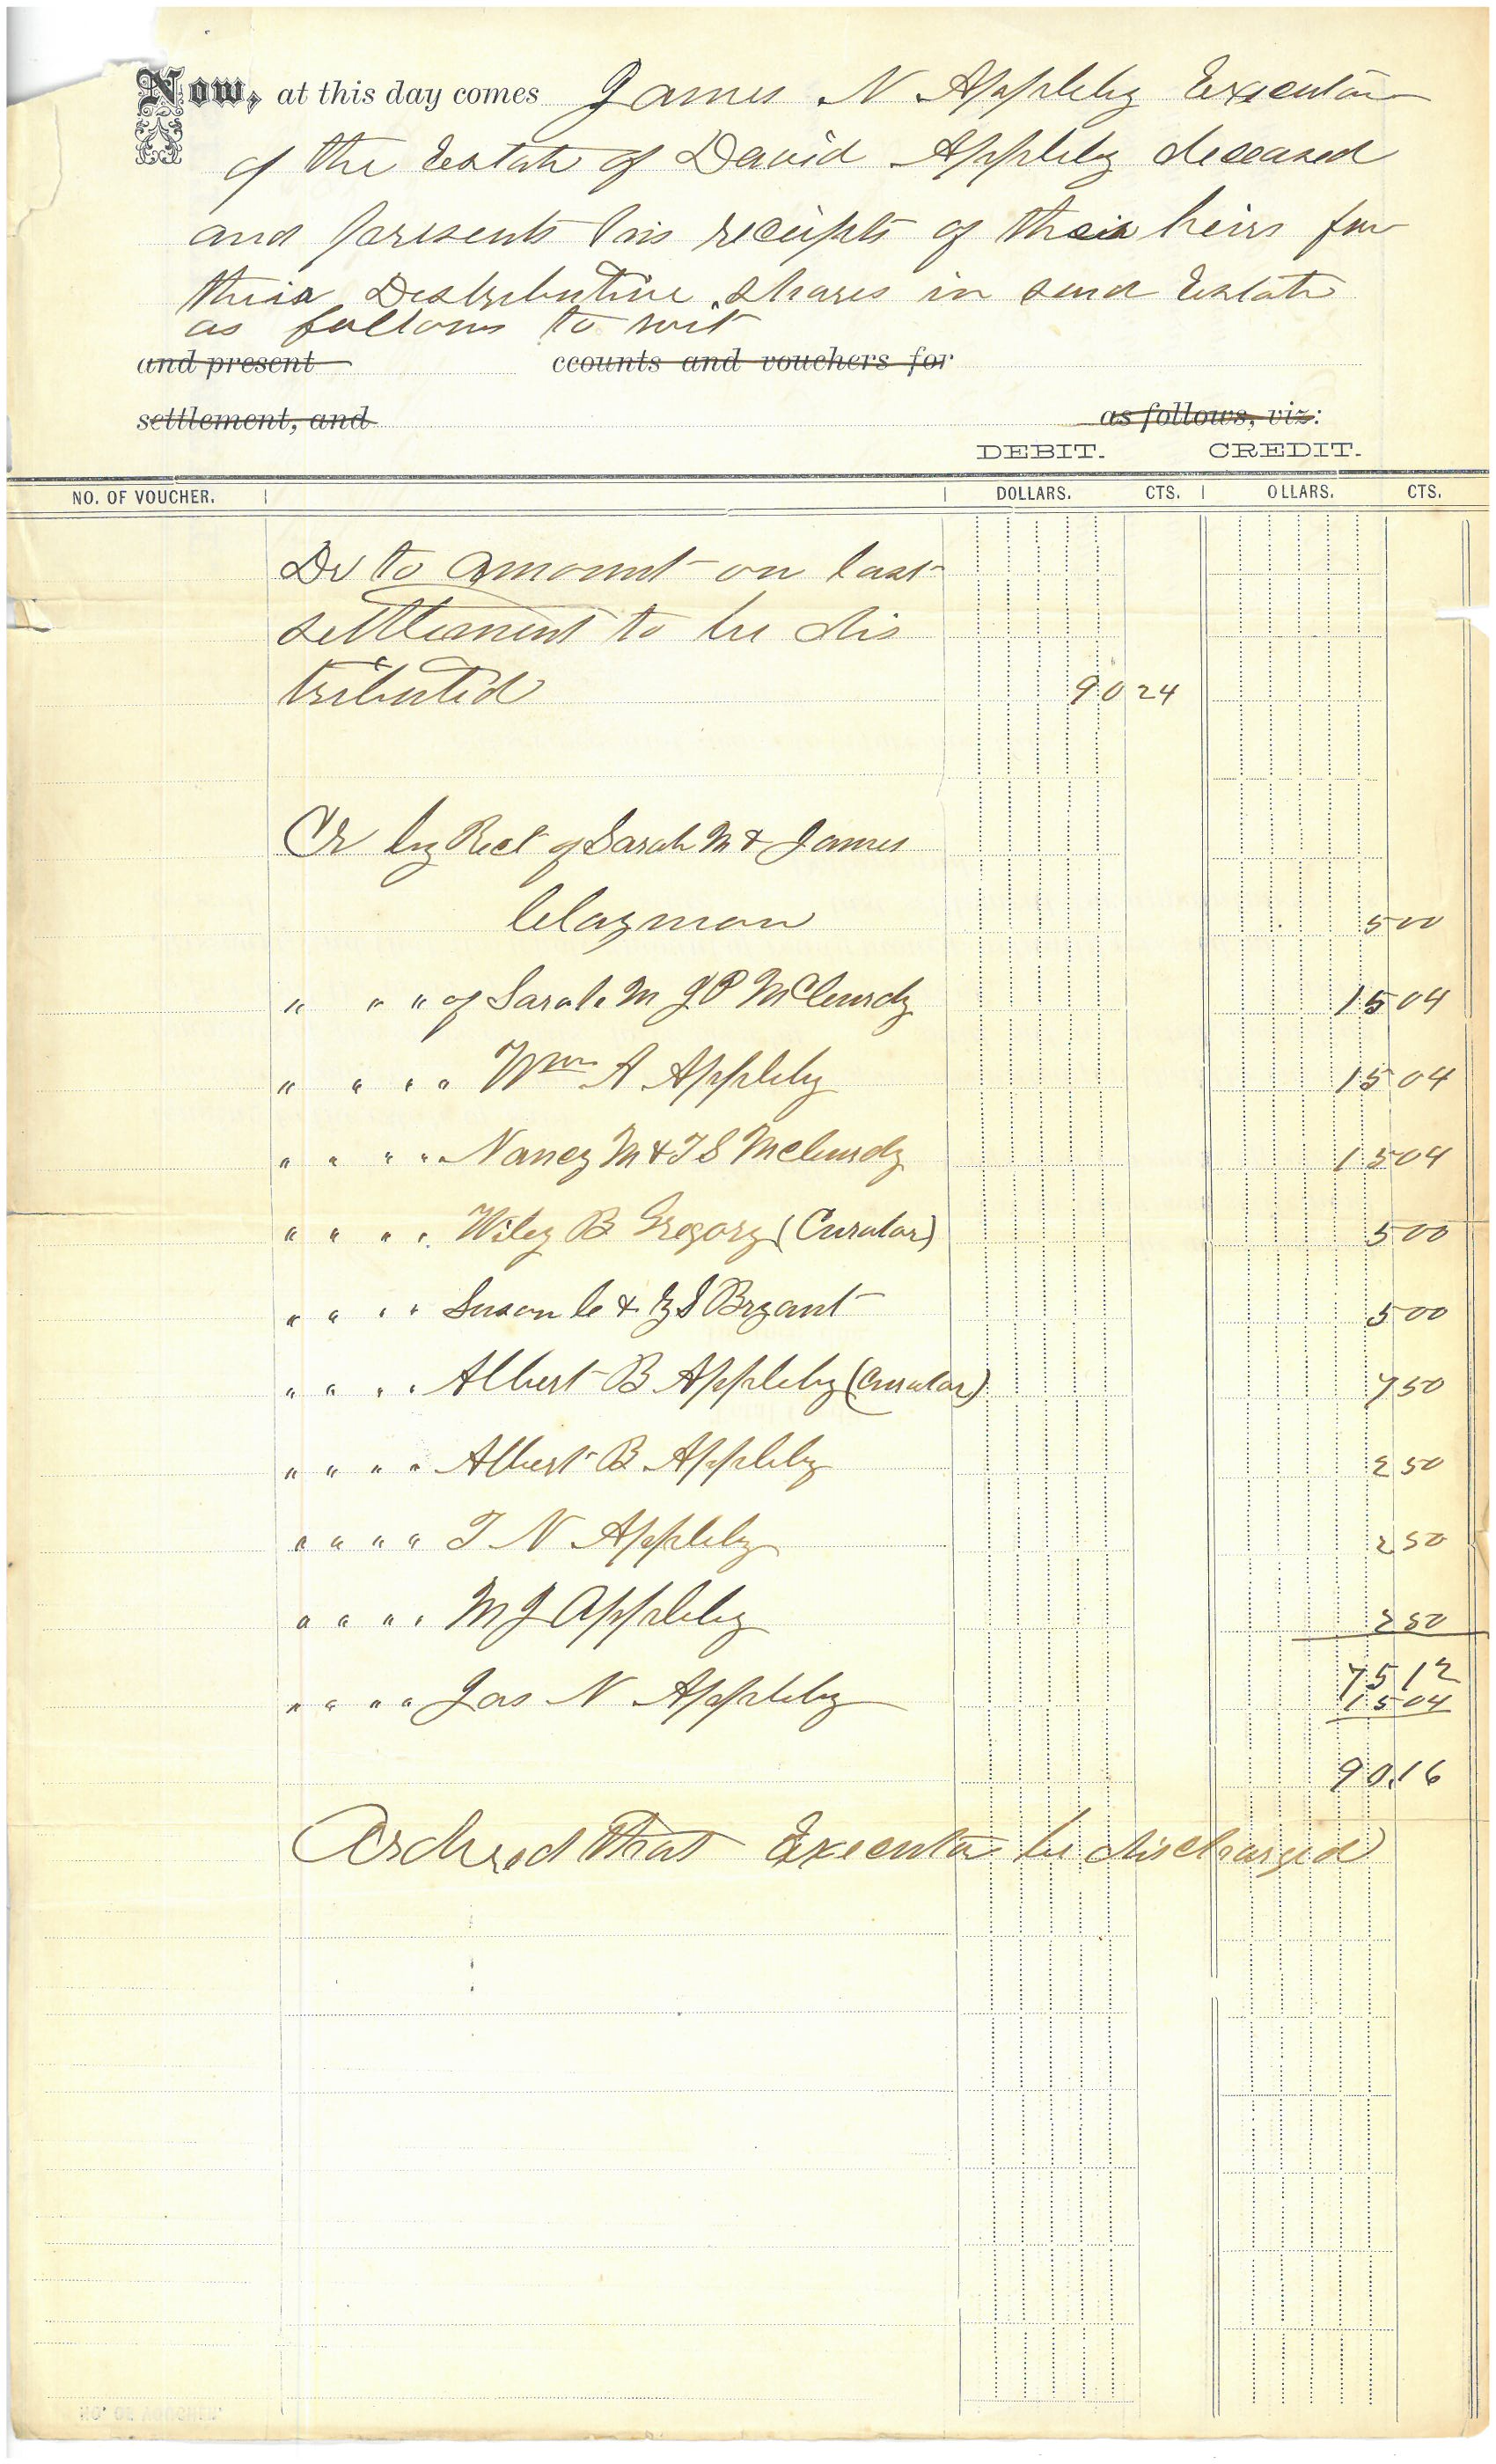 Now, at this day comes James N Appleby Executor
of the Estate of David Appleby deceased
and presents his receipts of their heirs for
their Distributive shares in said Estate
as follows to wit
and present ccounts and vouchers for
settlement, and as follows, viz:
DEBIT. CREDIT.
NO. OF VOUCHER. DOLLARS. CTS. OLLARS. CTS.
Dr to amount on last
settlement to be dis
tributed 90 24
Cr by Rect of Sarah M & James
Clayman 5 00
" " " of Sarah M J P McClurdy 15 04
" " " " Wm A Appleby 15 04
" " " " Nancy M & T S McClurdy 15 04
" " " " Wiley B Gregory (Curator) 5 00
" " " " Susan C & G S Bryant 5 00
" " " " Albert B Appleby (Curator) 7 50
" " " " Albert B Appleby 2 50
" " " " T N Appleby 2 50
" " " " M J Appleby 2 50
75 12
" " " " Jas N Appleby 15 04
90.16
Ordered that Executor be discharged
NO. OF VOUCHER.